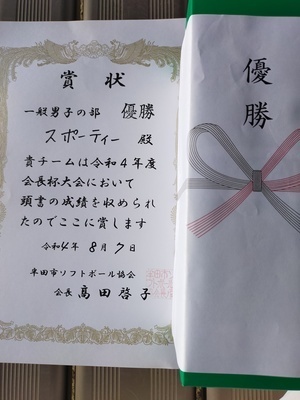 賞状
一般男子の部 優勝
スポーティー 殿
貴チームは令和4年度
会長杯大会において
頭書の成績を収められ
たのでここに賞します
令和4年 8月7日
半田市ソフトボール協会
会長 髙田啓子
優勝